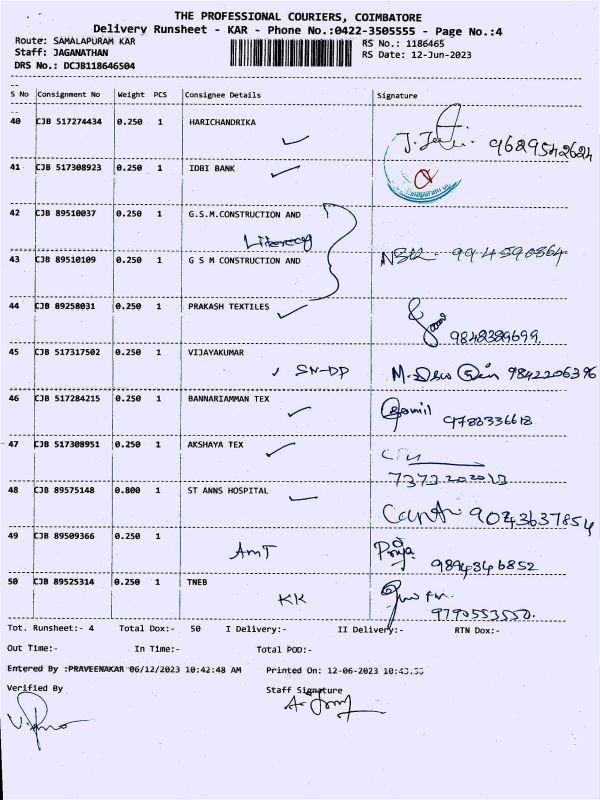 THE PROFESSIONAL COURIERS, COIMBATORE
Delivery Runsheet - KAR - Phone No.:0422-3505555 - Page No.:4
Route: SAMALAPURAM KAR RS No.: 1186465
Staff: JAGANATHAN RS Date: 12-Jun-2023
DRS No.: DCJB118646504
S No Consignment No Weight PCS Consignee Details Signature
40 CJB 517274434 0.250 1 HARICHANDRIKA 9629542624
41 CJB 517308923 0.250 1 IDBI BANK
42 CJB 89510037 0.250 1 G.S.M.CONSTRUCTION AND
43 CJB 89510109 0.250 1 G S M CONSTRUCTION AND
44 CJB 89258031 0.250 1 PRAKASH TEXTILES
9842389699.
45 CJB 517317502 0.250 1 VIJAYAKUMAR
SN-DP 9842206396
46 CJB 517284215 0.250 1 BANNARIAMMAN TEX
9788336618
47 CJB 517308951 0.250 1 AKSHAYA TEX
48 CJB 89575148 0.800 1 ST ANNS HOSPITAL
9043637854
49 CJB 89509366 0.250 1
AmT Priya
9894346852
50 CJB 89525314 0.250 1 TNEB
KK
9790553550.
Tot. Runsheet:- 4 Total Dox:- 50 I Delivery:- II Delivery:- RTN Dox:-
Out Time:- In Time:- Total POD:-
Entered By :PRAVEENAKAR 06/12/2023 10:42:48 AM Printed On: 12-06-2023
Verified By Staff Signature